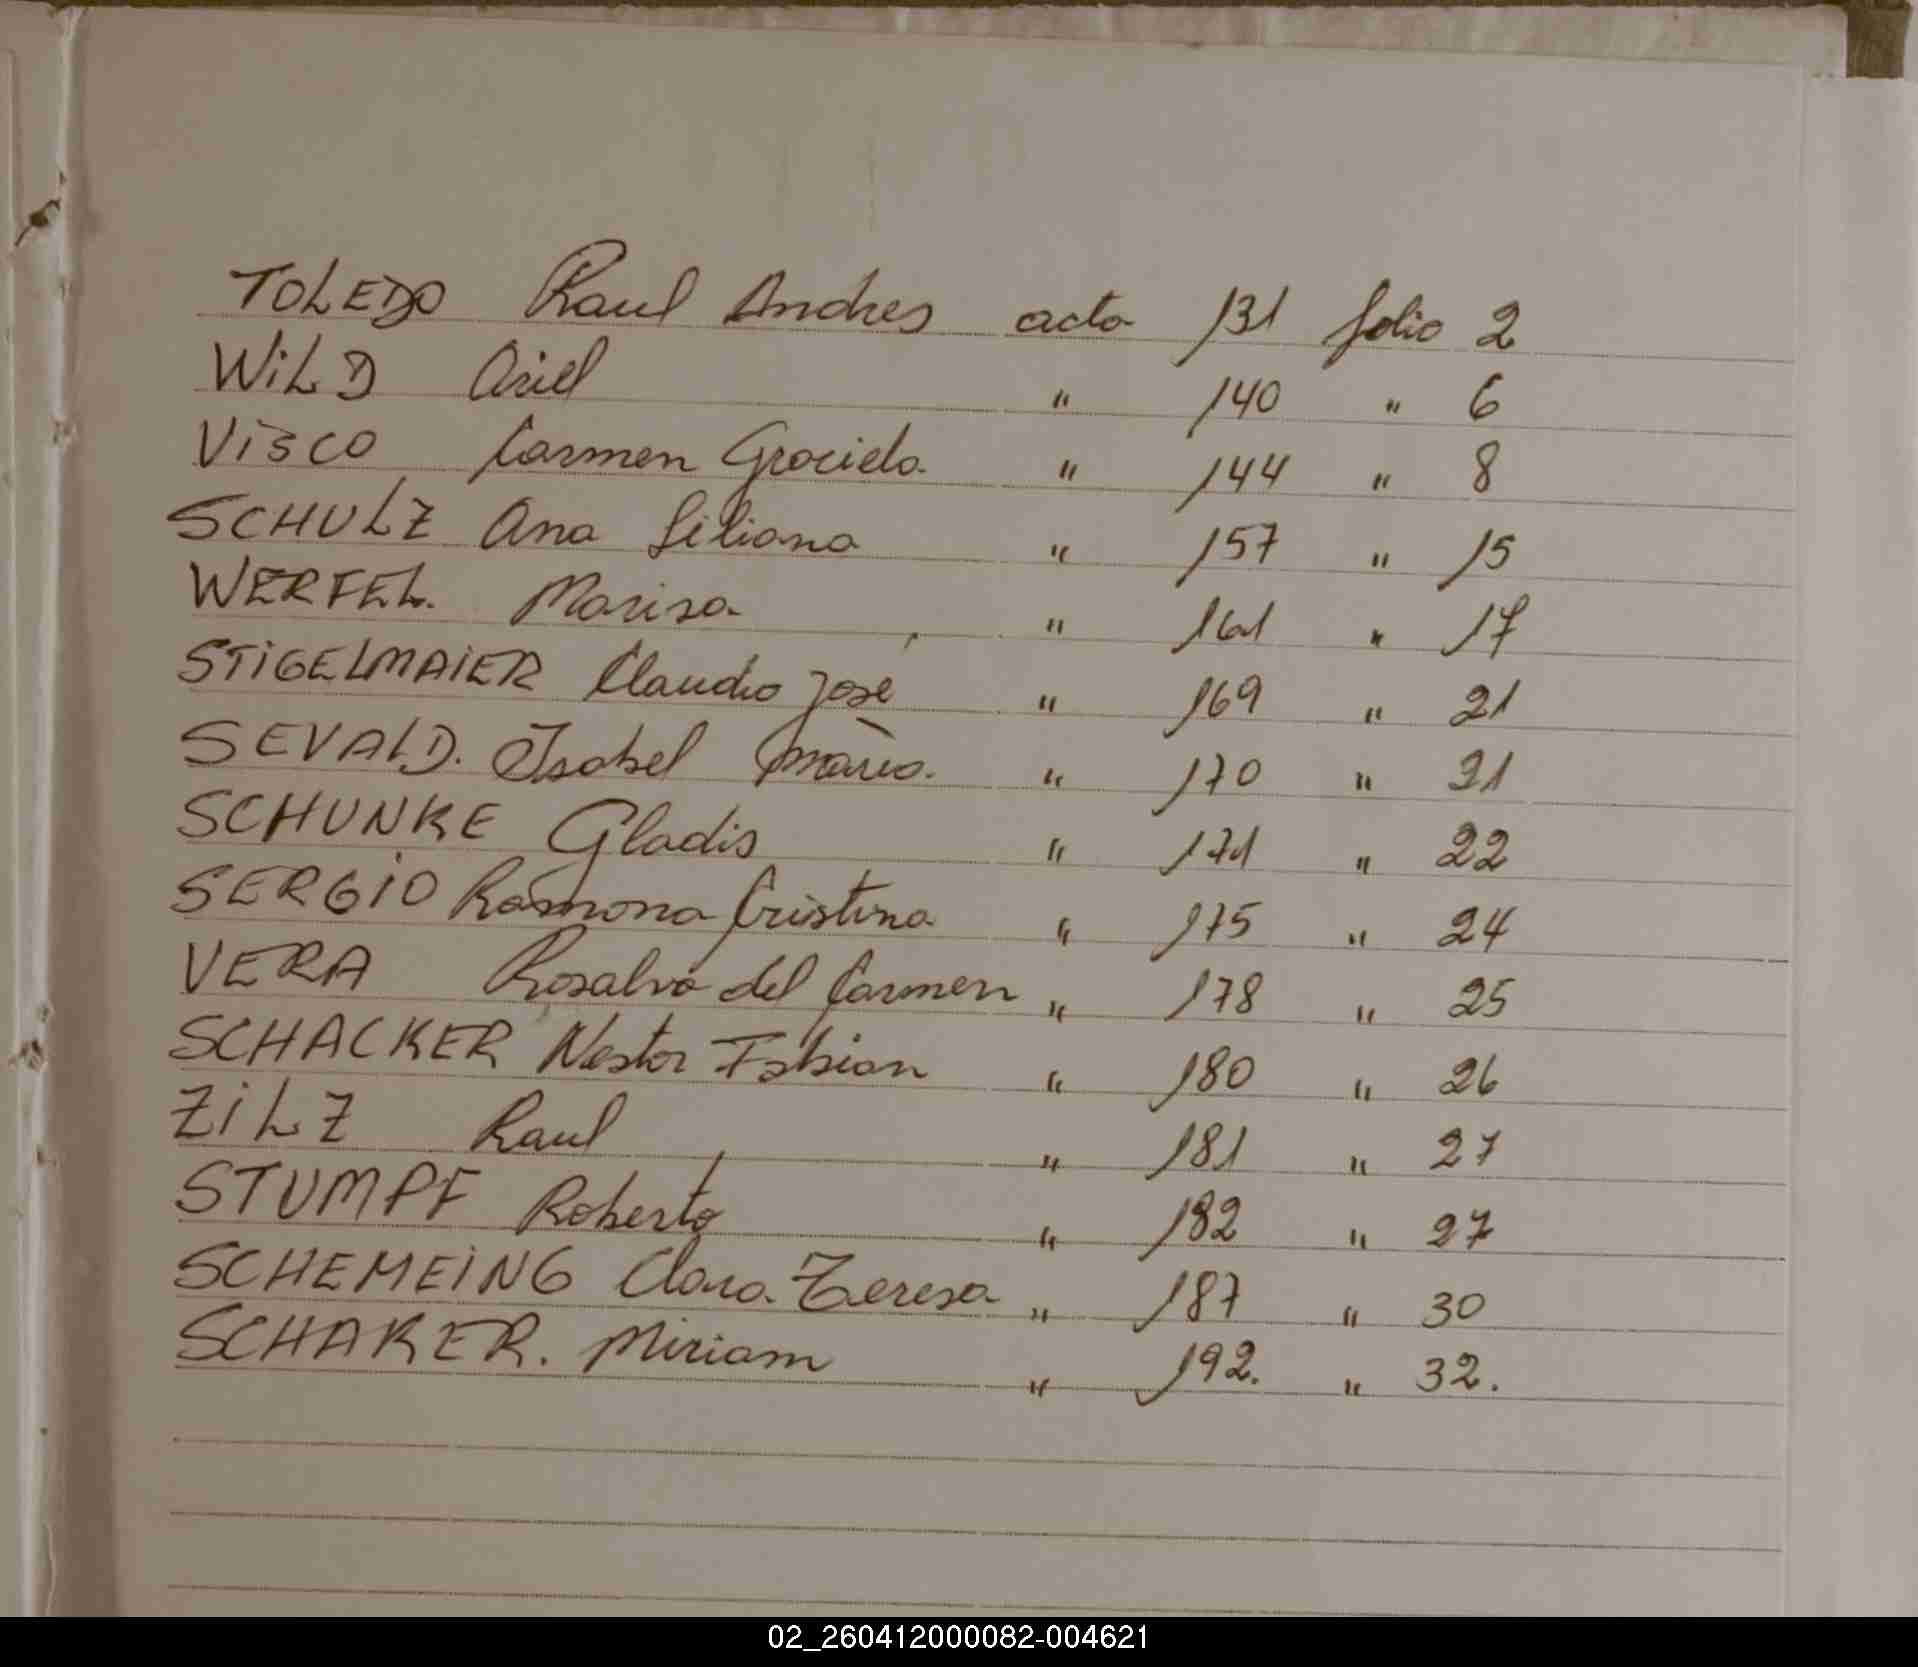 TOLEDO Raul Andres acta 131 folio 2
WiLD Ariel " 140 " 6
ViSCO Carmen Graciela " 144 " 8
SCHULZ Ana Liliana " 157 " 15
WERFEL. Marisa " 161 " 17
STiGELMAiER Claudio José " 169 " 21
SEVALD. Isabel María. " 170 " 21
SCHUNKE Gladis " 171 " 22
SERGiO Ramona Cristina " 175 " 24
VERA Rosalva del Carmen " 178 " 25
SCHACKER Nestor Fabian " 180 " 26
ZiLZ Raul " 181 " 27
STUMPF Roberto " 182 " 27
SCHEMEiNG Clara Teresa " 187 " 30
SCHAKER. Miriam " 192. " 32.
02_260412000082-004621